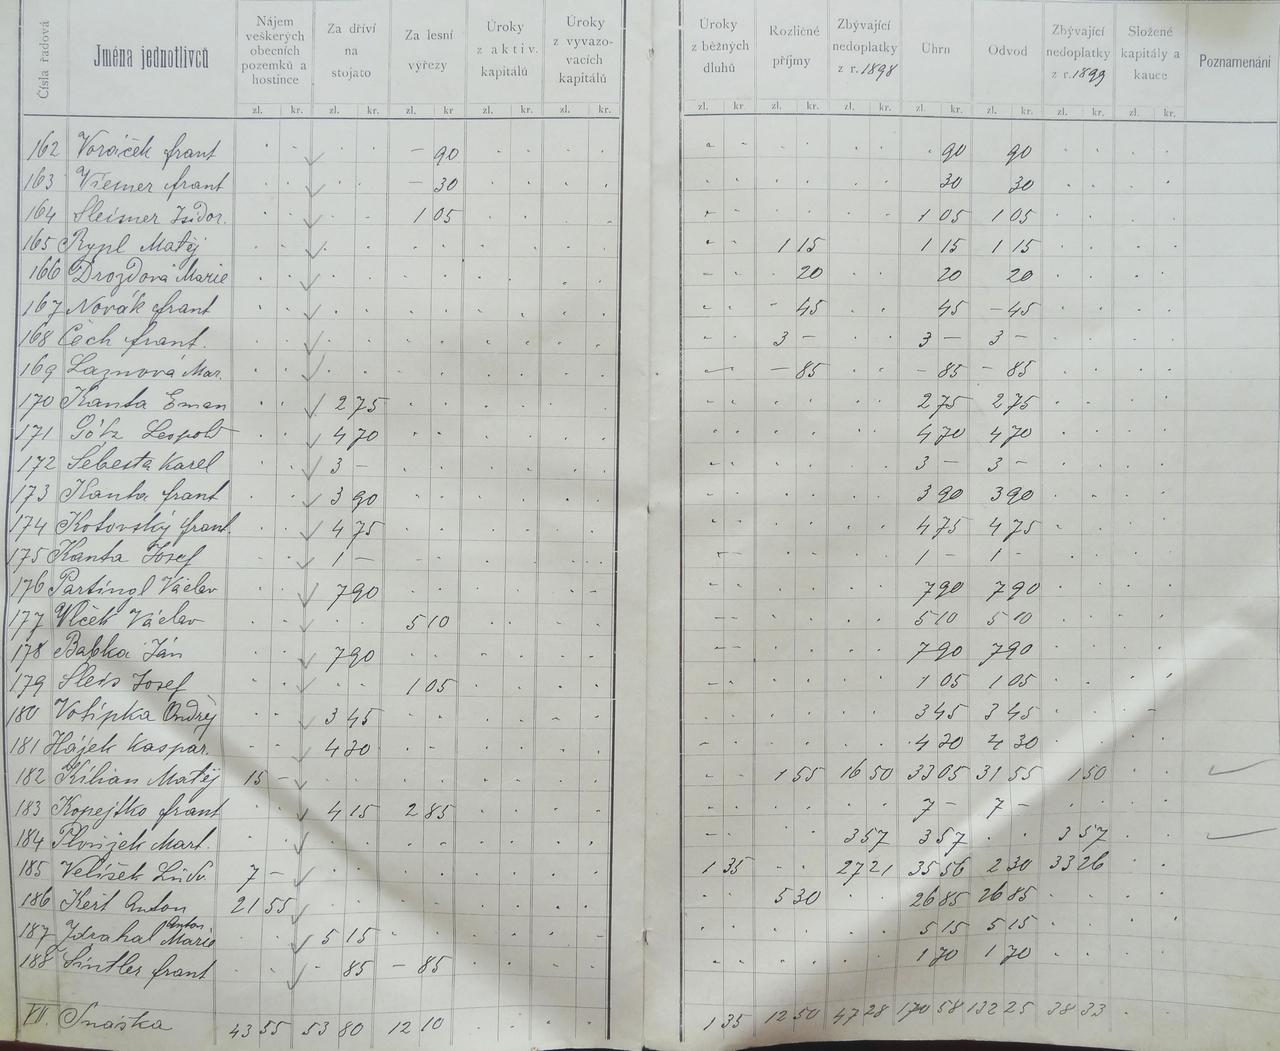 Čísla řadová | Jména jednotlivců | Nájem veškerých obecních pozemků a hostince | Za dříví na stojato | Za lesní výřezy | Úroky z aktiv. kapitálů | Úroky z vyvazovacích kapitálů | Úroky z běžných dluhů | Rozličné příjmy | Zbývající nedoplatky z r. 1898 | Úhrn | Odvod | Zbývající nedoplatky z r. 1899 | Složené kapitály a kauce | Poznamenání
zl. kr. zl. kr. zl. kr zl. kr. zl. kr. zl. kr. zl. kr. zl. kr. zl. kr. zl. kr. zl. kr. zl. kr.
162 Voráček frant – 90 90 90
163 Viesner frant – 30 30 30
164 Sleisner Isidor. 1 05 1 05 1 05
165 Rypl Matěj 1 15 1 15 1 15
166 Drozdová Marie 20 20 20
167 Novák frant - 45 45 – 45
168 Čech frant. 3 – 3 – 3 –
169 Laznová Mar. – 85 – 85 – 85
170 Kanta Eman 2 75 2 75 2 75
171 Leopold 4 70 4 70 4 70
172 Šebesta Karel 3 – 3 – 3 –
173 Kanta frant 3 90 3 90 3 90
174 Kotovský frant. 4 75 4 75 4 75
175 Kanta Josef 1 – 1 - 1 -
176 Partingl Václav 7 90 7 90 7 90
177 Vlček Václav 5 10 5 10 5 10
178 Babka Ján 7 90 7 90 7 90
179 Sleis Josef 1 05 1 05 1 05
180 Votípka Ondřej 3 45 3 45 3 45
181 Hájek Kaspar. 4 30 4 30 4 30
182 Kilian Matěj 15 – 1 55 16 50 33 05 31 55 1 50
183 Kopejtko frant 4 15 2 85 7 – 7 –
184 Mart. 3 57 3 57 3 57
185 Velíšek Ludv. 7 – 1 35 27 21 35 56 2 30 33 26
186 Keit Anton 21 55 5 30 26 85 26 85
187 Zdrahal Anton Marie 5 15 5 15 5 15
188 Sintler frant 85 – 85 1 70 1 70
VII. Snáška 43 55 53 80 12 10 1 35 12 50 47 28 170 58 132 25 38 33